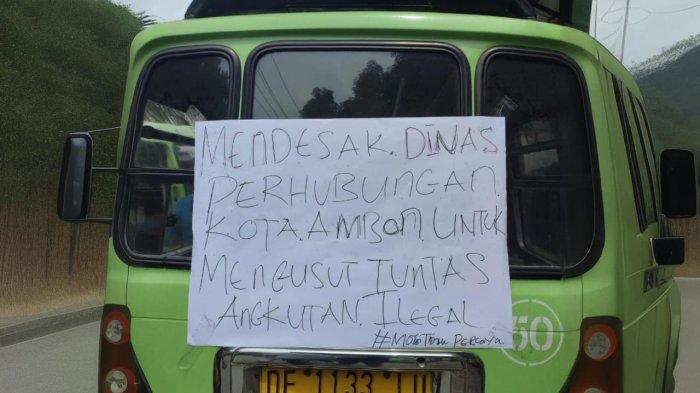 MENDESAK. DINAS
PERHUBUNGAN.
KOTA. AMBON. UNTUK
MENGUSUT TUNTAS
ANGKUTAN. ILEGAL
50
DE 1133 LU